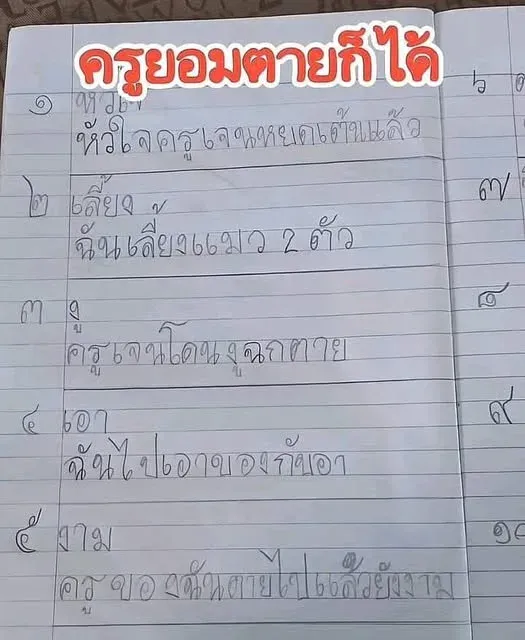 ครูยอมตายก็ได้
๑ หัวใจ
หัวใจครูเจนหยุดเต้นแล้ว
๒ เลี้ยง
ฉันเลี้ยงแมว 2 ตัว
๓ งู
ครูเจนโดนงูฉกตาย
๔ เอา
ฉันไปเอาของกับอา
๕ งาม
ครูของฉันตายไปแล้วยังงาม
๖
๗
๘
๙
๑๐